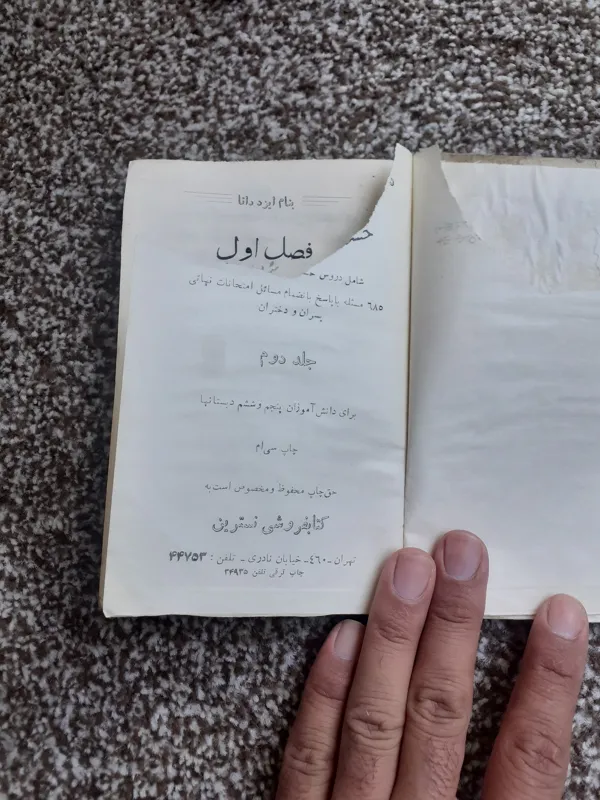 بنام ایزد دانا
فصل اول
شامل دروس
۶۸۵ مسئله با پاسخ بانضمام مسائل امتحانات نهائی
پسران و دختران
جلد دوم
برای دانش‌آموزان پنجم و ششم دبستانها
چاپ سی‌ام
حق چاپ محفوظ و مخصوص است به
کتابفروشی نسترین
تهران ـ ۴۶۰ ـ خیابان نادری ـ تلفن : ۴۴۷۵۳
چاپ ترقی تلفن ۳۴۹۳۵